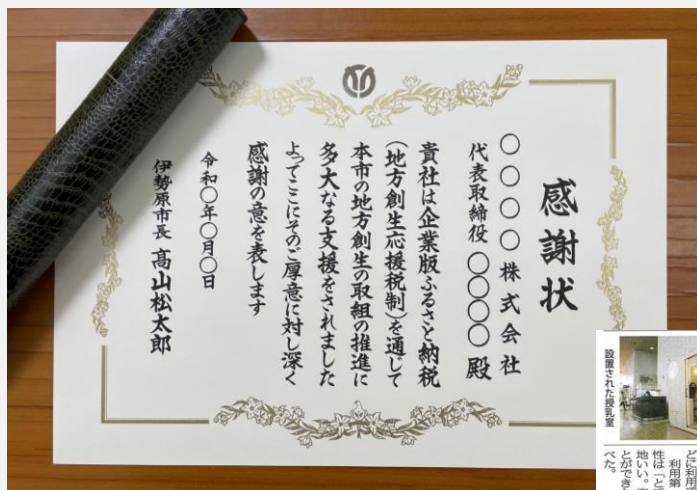 感謝状
〇〇〇〇株式会社
代表取締役 〇〇〇〇 殿
貴社は企業版ふるさと納税
(地方創生応援税制)を通じて
本市の地方創生の取組の推進に
多大なる支援をされました
よってここにそのご厚意に対し深く
感謝の意を表します
令和〇年〇月〇日
伊勢原市長 髙山松太郎
設置された授乳室
どに利用で
利用第
性は「とて
地いい。
とができ
べた。